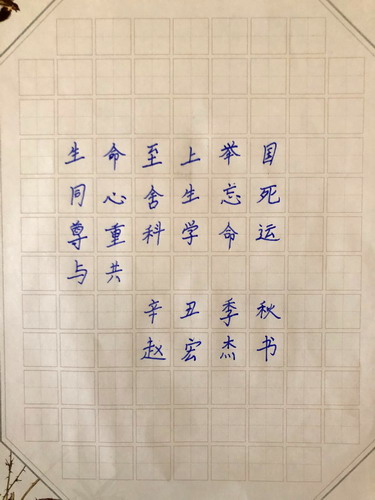 生命至上举国
同心舍生忘死
尊重科学命运
与共
辛丑季秋
赵宏杰书